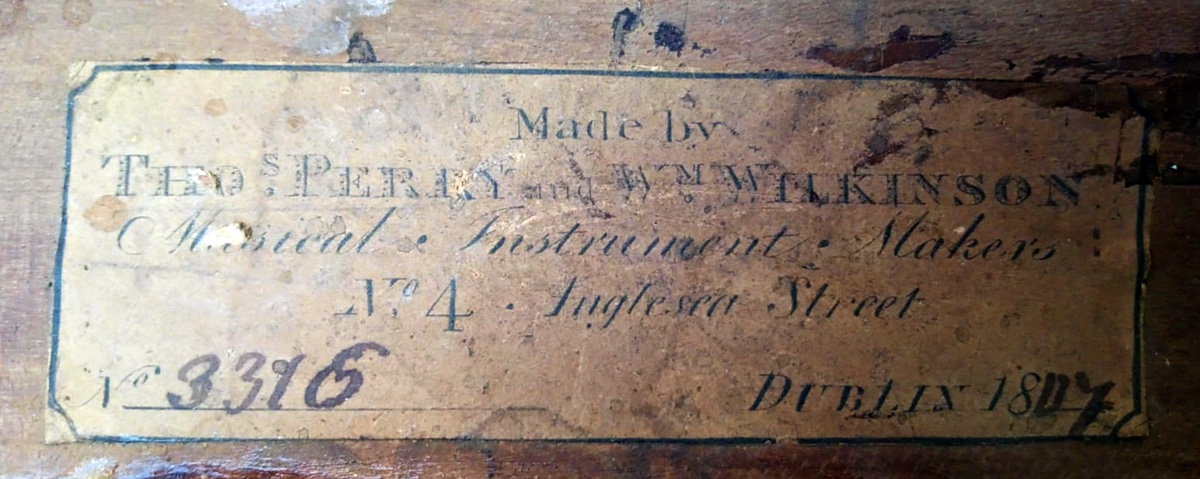 Made by
THOS. PERRY and WM. WILKINSON
Musical Instrument Makers
No. 4 . Anglesea Street
No 3316 DUBLIN 1807